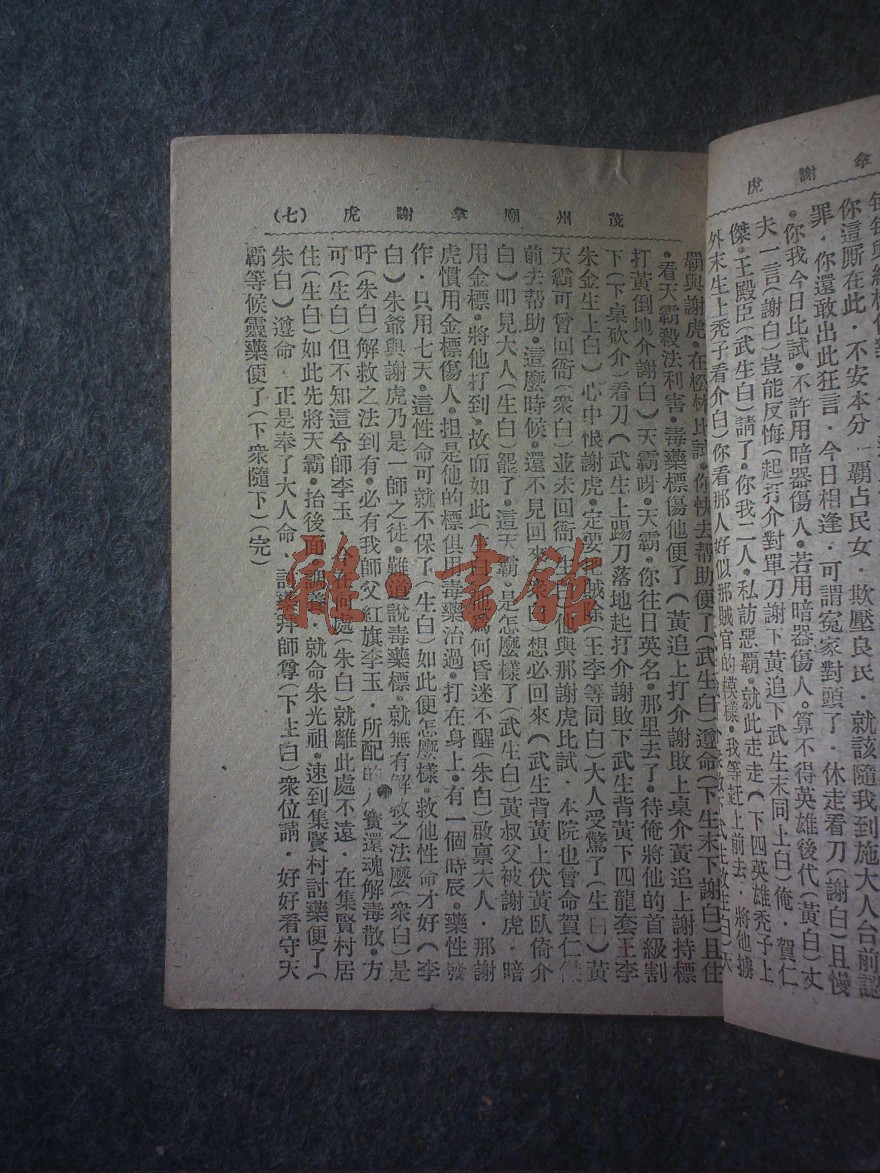 拿謝虎
你這厮在此．不安本分．霸占民女．欺壓良民．就該隨我到施大人台前認
罪．你還敢出此狂言．今日相逢．可謂冤家對頭了．休走看刀（謝白）且慢
．你我今日比試．不許用暗器傷人．若用暗器傷人。算不得英雄後代（黃白）丈
夫一言（謝白）豈能反悔（起打介對單刀謝下黃追下武生末同上白）俺．賀仁
傑．王殿臣（武生白）請了．你我二人．私訪惡霸．就此走走（下四英雄禿子上
外末生上禿子看介白）你看那人好似那賊官的模樣．我等赶上前去．將他擄
茂州廟拿謝虎（七）
霸與謝虎．在松林比試．你快去帮助便了（武生白）遵命（下生末下謝白）且住
．看天霸殺法利害．毒藥標傷他便了（黃追上打介謝敗上桌介黃追上謝持標
打黃倒地介謝白）天霸呀．天霸．你往日英名．那里去了．待俺將他的首級割
下（下桌砍介）看刀（武生上踢刀落地起打介謝敗下武生背黃下四龍套王李
朱金生上白）心中恨謝虎．定要賊除（王李等同白）大人受驚了（生白）黃
天霸可曾回衙（衆白）並未回衙（生白）他與那謝虎比試．本院也曾命賀仁
前去帮助．這麼時候．還不見回來（衆白）想必回來（武生背黃上伏黃臥倚介
白）叩見大人（生白）罷了．這天霸．是怎麼樣了（武生白）黃叔父被謝虎．暗
用金標．將他打到．故而如此（生白）他爲何昏迷不醒（朱白）啟禀大人．那謝
虎慣用金標傷人．担是他的標俱用毒藥治過．打在身上．有一個時辰．藥性發
作．只用七天．這性命可就不保了（生白）如此便怎麼樣．救他性命才好（李
白）朱爺與謝虎乃是一師之徒．難道說毒藥標．就無有解救之法麼（衆白）是
吁（朱白）解救之法到有．必有我師父紅旗李玉．所配的八寶還魂解毒散．方
可（生白）但不知這令師李玉．今在何處（朱白）就離此處不遠．在集賢村居
住（生白）如此先將天霸．抬後面．就命朱光祖．速到集賢村討藥便了（
朱白）遵命．正是奉了大人命．討藥拜師尊（下生白）衆位請．好好看守天
霸等候靈藥便了（下衆隨下）（完）
雜·書館